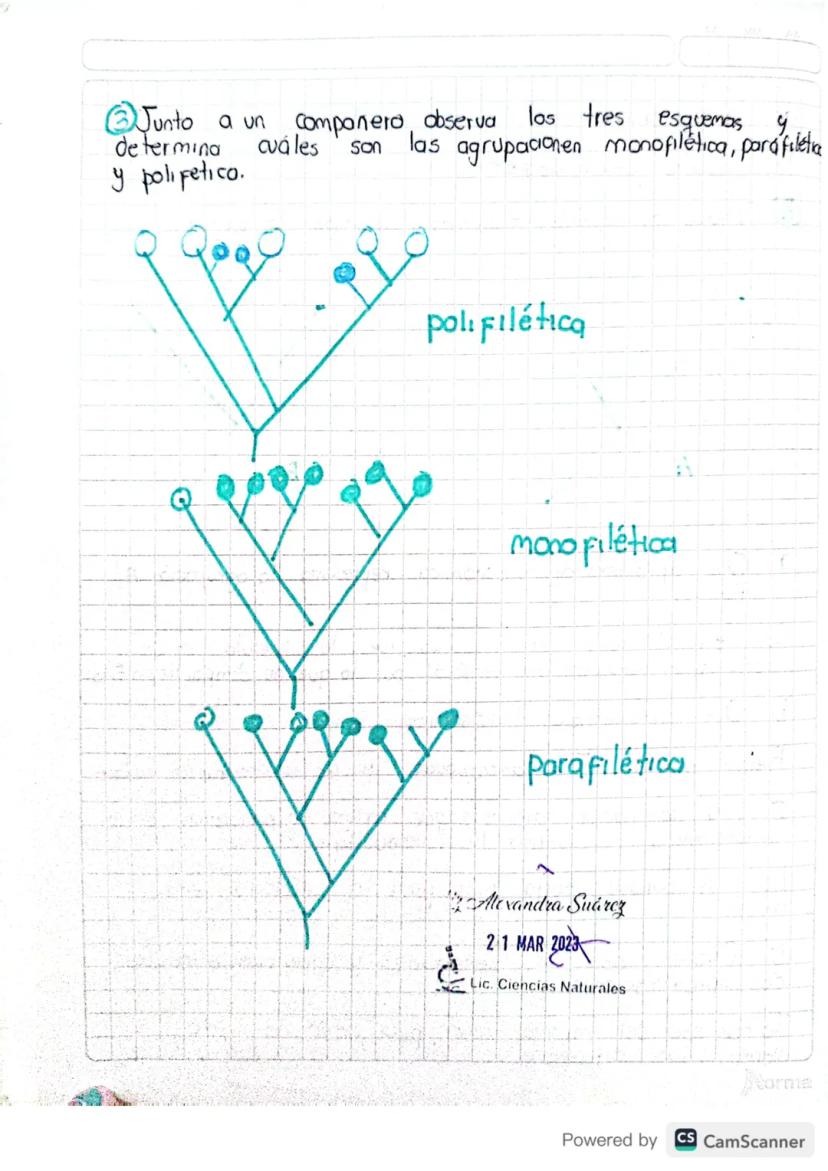 ③ Junto a un compañero observa los tres esquemas y
determina cuáles son las agrupacionen monofilética, paráfilética
y polifetico.
polifilética
monofilética
parafilética
Alexandra Suárez
21 MAR 2023
Lic. Ciencias Naturales
norma
Powered by CS CamScanner